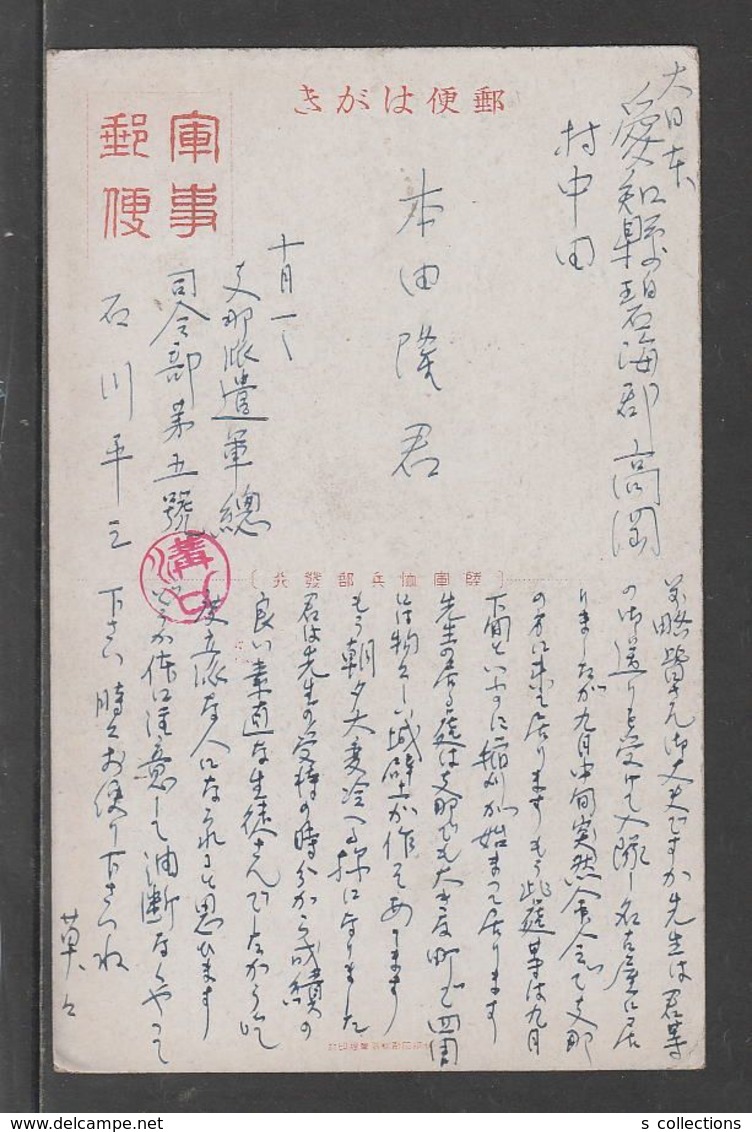 郵便はがき
軍事
郵便
大日本
愛知縣碧海郡高岡
村中田
本田隆君
十月一
支那派遣軍總
司令部第五號
石川平三
溝口
陸軍恤兵部發行
前略皆さん御丈夫ですか先生は君等
の御送りを受けて入隊し名古屋に居
りましたが九月中旬突然命令で支那
の方に来て居ります もう此邊等は九月
下旬といふのに稲刈が始まって居ります
先生の居る處は支那でも大きな町で四圍
には物々しい城壁が作ってあります
もう朝夕大変冷へる様になりました
君は先生の受持の時分から成績の
良い素直な生徒さんでしたから
立派な人になられると思ひます
どうか体に注意して油断なくやって
下さい 時々お便り下さいね
草々
s collections